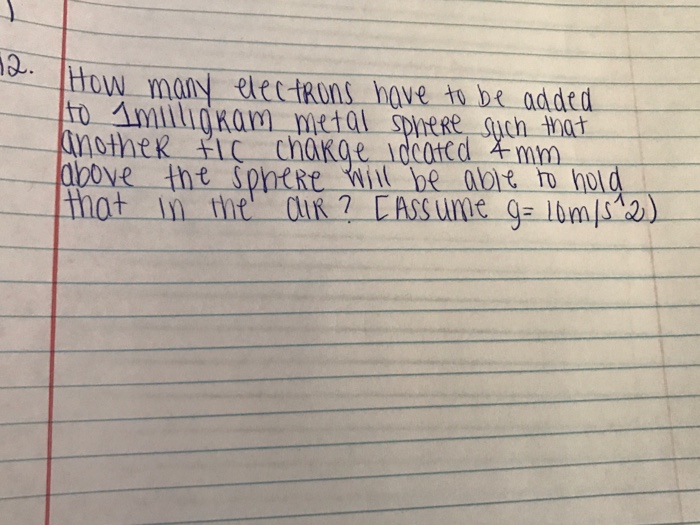 12. How many electrons have to be added
to 1milligram metal sphere such that
another +1C charge located 4mm
above the sphere will be able to hold
that in the air? [Assume g= 10m/s^2)